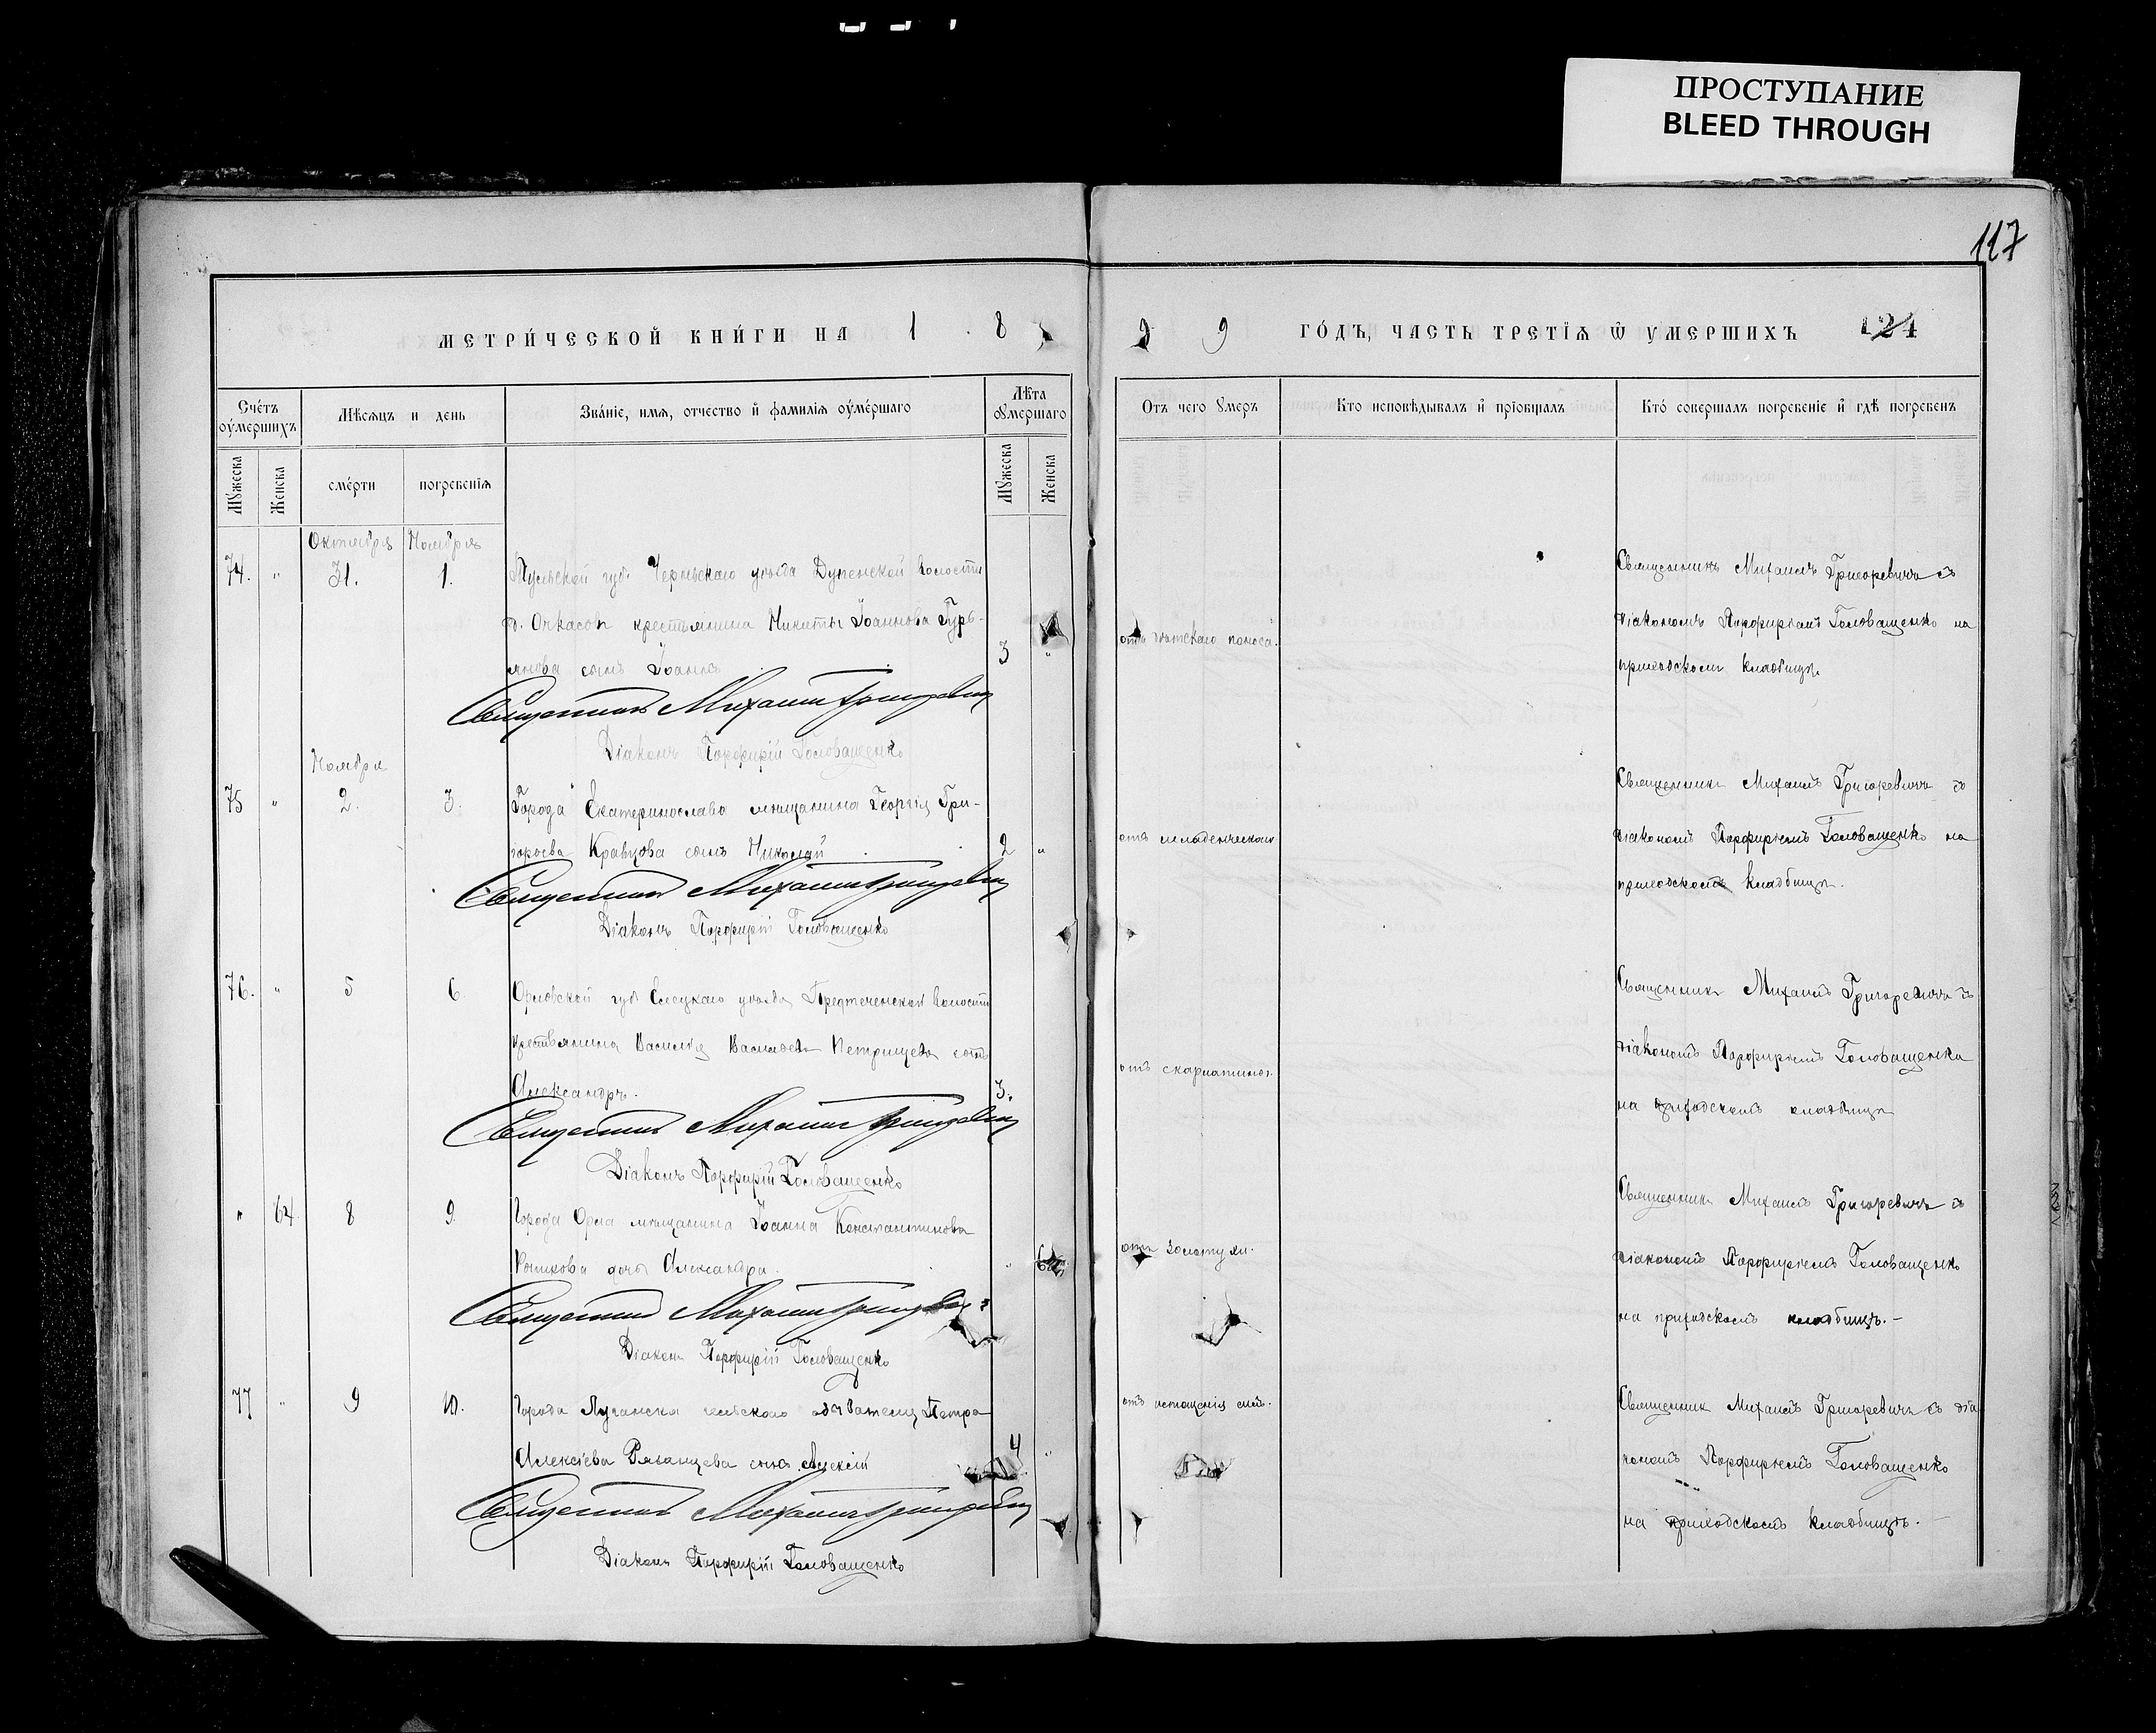 ПРОСТУПАНИЕ
BLEED THROUGH
117
МЕТРИ́ЧЕСКОЙ КНИ́ГИ НА 1 8
9 9 ГО́ДЪ, ЧАСТЬ ТРЕТІѦ Ѿ УМЕРШИХЪ 124
Сче́тъ оу҆ме́ршихъ
Мѣсѧцъ и день
Зва́ніе, имѧ, отчество и҆ фамилїѧ оу҆ме́ршаго
Лѣта ᲂумершаго
Мꙋжеска
Женска
сме́рти
погребенїѧ
Мꙋжеска
Женска
Отъ чего ᲂумеръ
Кто исповѣдывалъ и҆ прїобщалъ
Кто́ совершалъ погребеніе и҆ гдѣ погребенъ
Октября Ноября
74. " 31. 1. Тульской губ. Черньскаго уѣзда волости
крестьянина Никиты Іоаннова Гурь-
янова сынъ Іоаннъ 3 "
Священникъ Михаилъ Григоревичъ
Діаконъ Порфирій Головащенко
отъ поноса.
Священникъ Михаилъ Григоревичъ съ
діакономъ Порфиріемъ Головащенко на
приходскомъ кладбищѣ.
Ноября
75 " 2. 3. Города Екатеринослава мѣщанина Георгія Гри-
горьева Кравцова сынъ Николай 2 "
Священникъ Михаилъ Григоревичъ
Діаконъ Порфирій Головащенко
отъ младенческой
Священникъ Михаилъ Григоревичъ съ
діакономъ Порфиріемъ Головащенко на
приходскомъ кладбищѣ.
76. " 5 6. Орловской губ Елецкаго уѣзда Предтеченской волости
крестьянина Василія Васильева Петрищева сынъ
Александръ. 3.
Священникъ Михаилъ Григоревичъ
Діаконъ Порфирій Головащенко
отъ скарлатины.
Священникъ Михаилъ Григоревичъ съ
діакономъ Порфиріемъ Головащенко
на приходскомъ кладбищѣ
" 64. 8 9. Города Орла мѣщанина Іоанна Константинова
дочь Александра. "
Священникъ Михаилъ Григоревичъ
Діаконъ Порфирій Головащенко
отъ золотухи.
Священникъ Михаилъ Григоревичъ съ
діакономъ Порфиріемъ Головащенко
на приходскомъ кладбищѣ.-
77 " 9 10. Города Луганска сельскаго обывателя Петра
Алексіева Рязанцева сынъ Алексій 4 "
Священникъ Михаилъ Григоревичъ
Діаконъ Порфирій Головащенко
отъ истощенія силъ.
Священникъ Михаилъ Григоревичъ съ діа
кономъ Порфиріемъ Головащенко
на приходскомъ кладбищѣ.